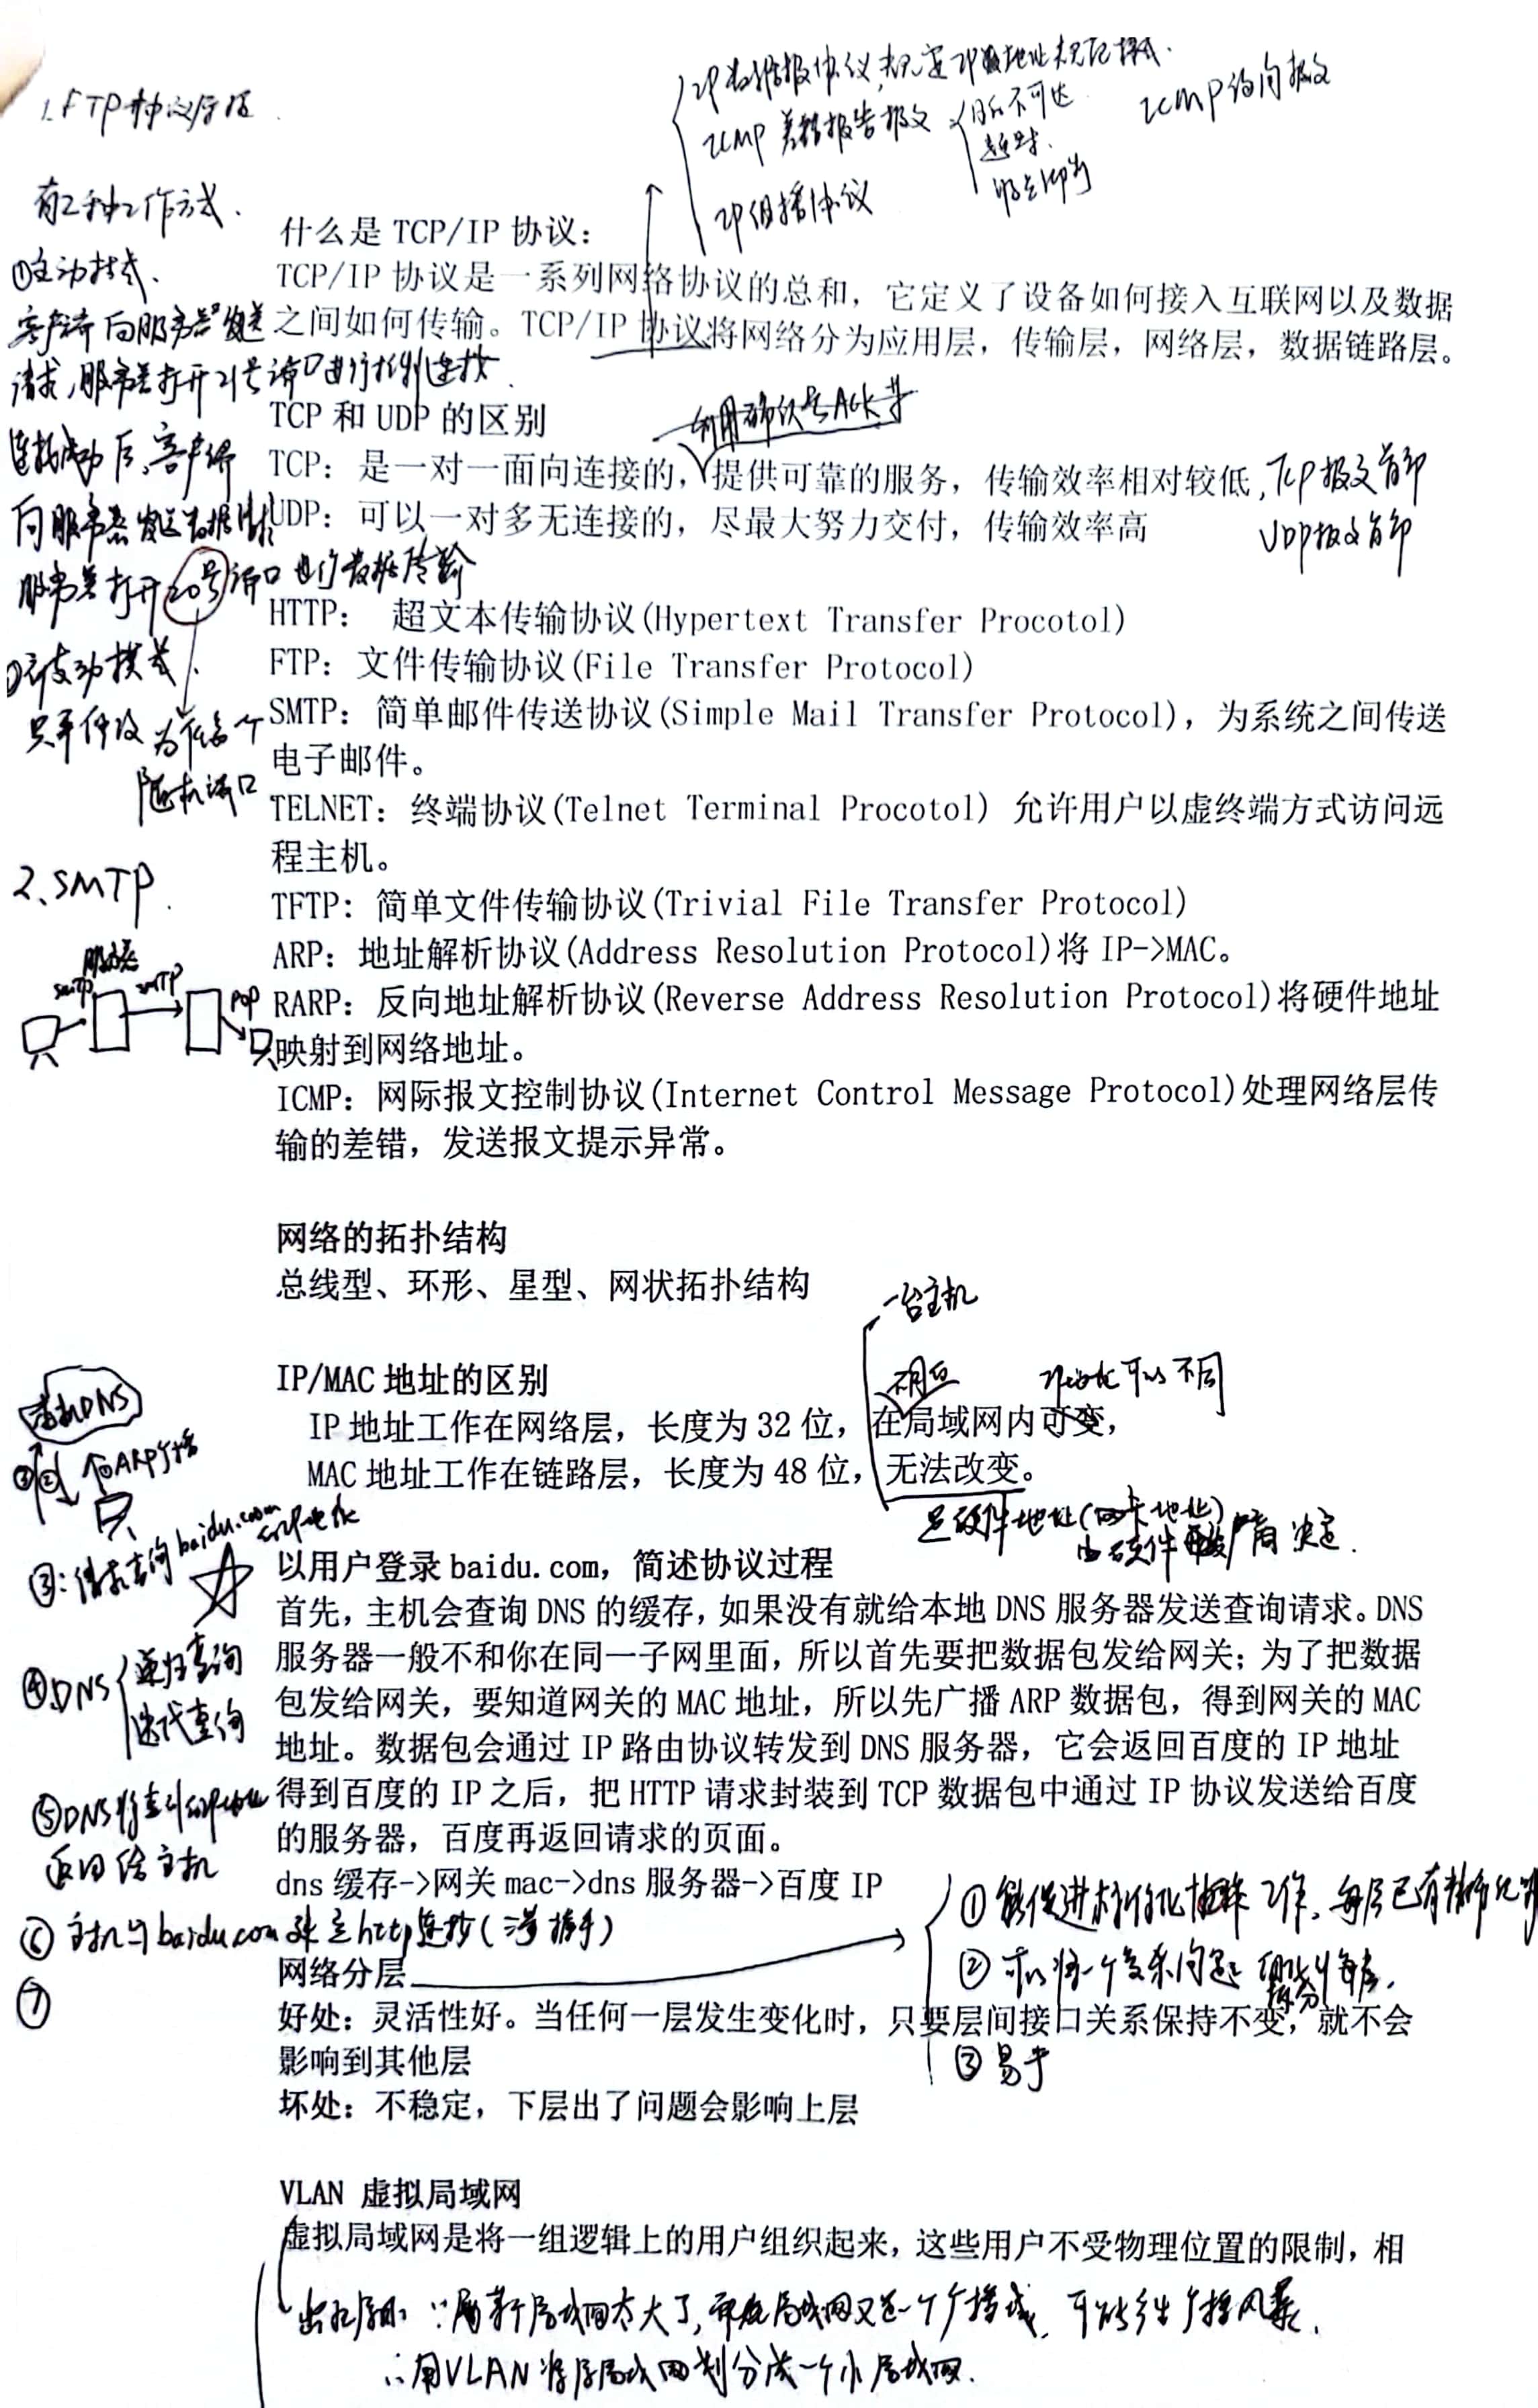 1.FTP协议
有2种工作方式.
①主动模式、
客户端向服务器发送
请求,服务器打开21号端口进行控制连接.
连接成功后,客户端
向服务器发送数据
服务器打开20号端口进行数据传输
被动模式.
只需修改为任意一个
随机端口
2、SMTP.
服务器
SMTP SMTP POP
IP数据报协议,规定IP地址
ICMP差错报告报文 目的不可达
超时、
ICMP询问报文
IP组播协议
什么是 TCP/IP 协议:
TCP/IP 协议是一系列网络协议的总和,它定义了设备如何接入互联网以及数据
之间如何传输。TCP/IP 协议将网络分为应用层,传输层,网络层,数据链路层。
TCP 和 UDP 的区别
利用确认号ACK等
TCP:是一对一面向连接的,提供可靠的服务,传输效率相对较低, TCP报文首部
UDP:可以一对多无连接的,尽最大努力交付,传输效率高 UDP报文首部
HTTP: 超文本传输协议(Hypertext Transfer Procotol)
FTP:文件传输协议(File Transfer Protocol)
SMTP:简单邮件传送协议(Simple Mail Transfer Protocol),为系统之间传送
电子邮件。
TELNET:终端协议(Telnet Terminal Procotol) 允许用户以虚终端方式访问远
程主机。
TFTP:简单文件传输协议(Trivial File Transfer Protocol)
ARP:地址解析协议(Address Resolution Protocol)将 IP->MAC。
RARP:反向地址解析协议(Reverse Address Resolution Protocol)将硬件地址
映射到网络地址。
ICMP:网际报文控制协议(Internet Control Message Protocol)处理网络层传
输的差错,发送报文提示异常。
网络的拓扑结构
总线型、环形、星型、网状拓扑结构
一台主机
IP/MAC 地址的区别
不同 IP地址可以不同
IP 地址工作在网络层,长度为 32 位,在局域网内可变,
MAC 地址工作在链路层,长度为 48 位,无法改变。
是硬件地址(网卡地址)
由硬件厂商决定.
DNS
③ ② ①ARP广播
③:请求查询baidu.com的IP地址
④DNS 递归查询
迭代查询
⑤DNS将查到的IP地址
返回给主机
以用户登录 baidu.com,简述协议过程
首先,主机会查询 DNS 的缓存,如果没有就给本地 DNS 服务器发送查询请求。DNS
服务器一般不和你在同一子网里面,所以首先要把数据包发给网关;为了把数据
包发给网关,要知道网关的 MAC 地址,所以先广播 ARP 数据包,得到网关的 MAC
地址。数据包会通过 IP 路由协议转发到 DNS 服务器,它会返回百度的 IP 地址
得到百度的 IP 之后,把 HTTP 请求封装到 TCP 数据包中通过 IP 协议发送给百度
的服务器,百度再返回请求的页面。
dns 缓存->网关 mac->dns 服务器->百度 IP
⑥主机与baidu.com建立http连接(三次握手)
⑦
网络分层
①能促进标准化工作,每层已有精确说明
②可以将一个复杂问题拆分
③易于
好处:灵活性好。当任何一层发生变化时,只要层间接口关系保持不变,就不会
影响到其他层
坏处:不稳定,下层出了问题会影响上层
VLAN 虚拟局域网
虚拟局域网是将一组逻辑上的用户组织起来,这些用户不受物理位置的限制,相
出现原因:∵局域网太大了,而局域网又是一个广播域,可能产生广播风暴.
∴用VLAN将局域网划分成一个小局域网.